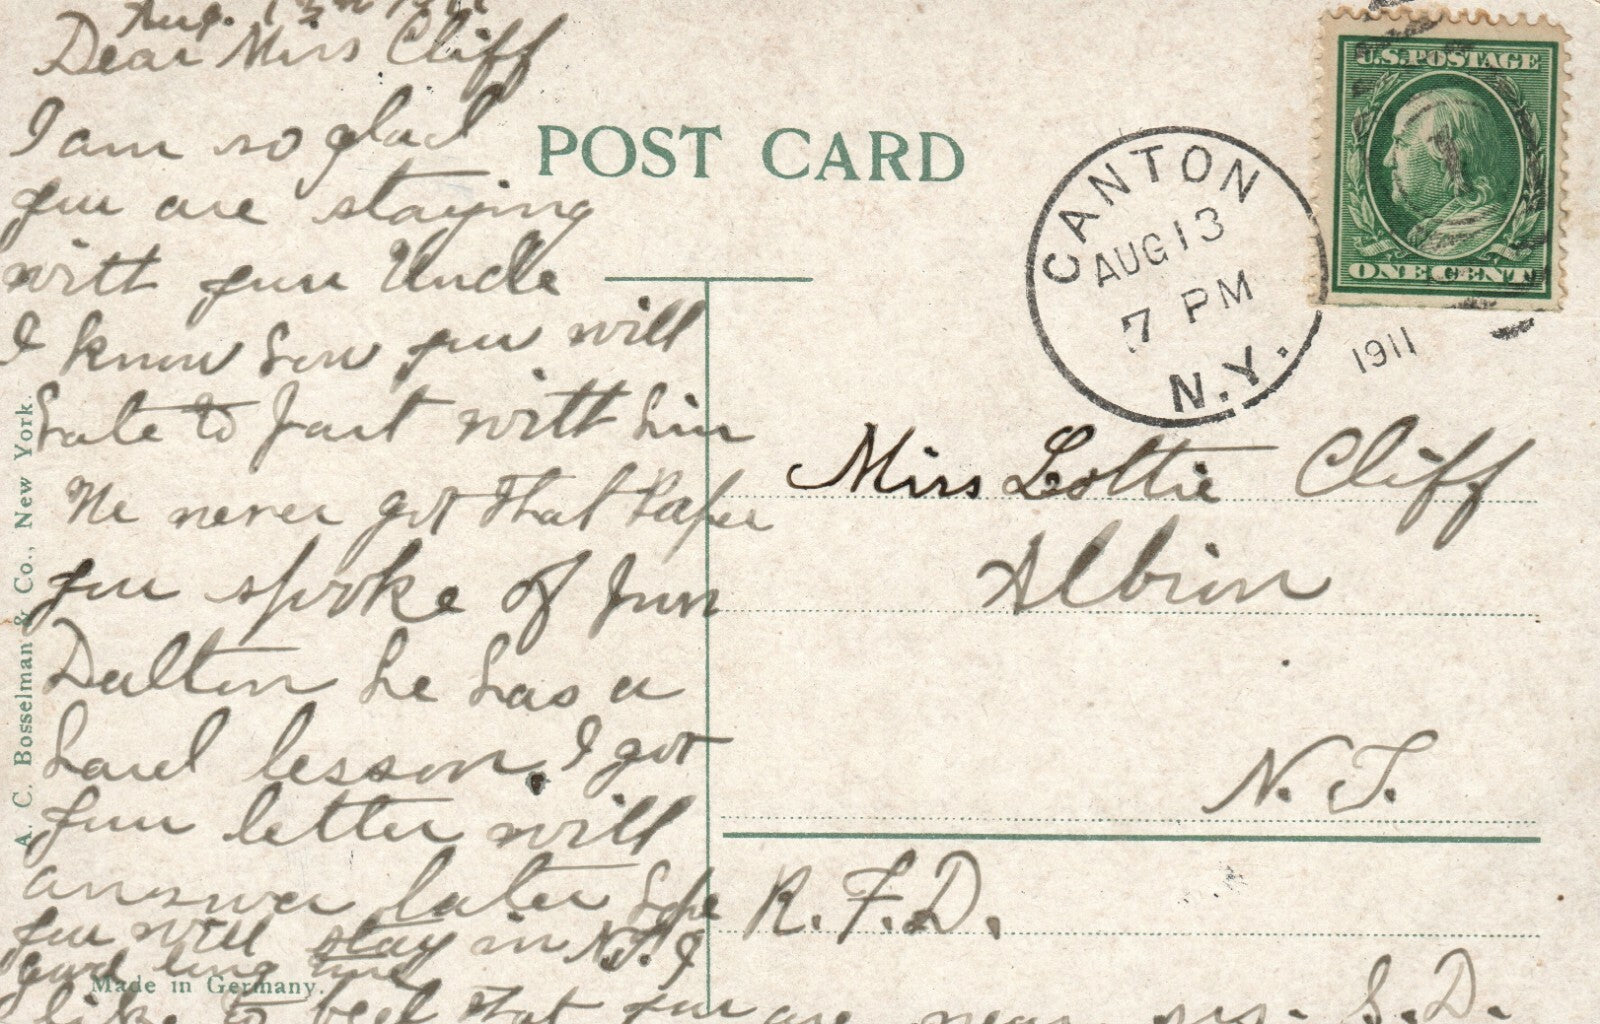 Aug. 13th 1911
Dear Miss Cliff
I am so glad
you are staying
with your Uncle
I know how you will
hate to part with him
We never got that Paper
you spoke of from
Dalton he has a
hard lesson. I got
your letter will
answer later hope
you will stay in N.J. a
good long time
I like to feel that you are near us. S.D.
POST CARD
CANTON
AUG 13
7 PM
N.Y.
1911
U.S. POSTAGE
ONE CENT
Miss Lottie Cliff
Albion
N.J.
R.F.D.
A. C. Bosselman & Co., New York.
Made in Germany.